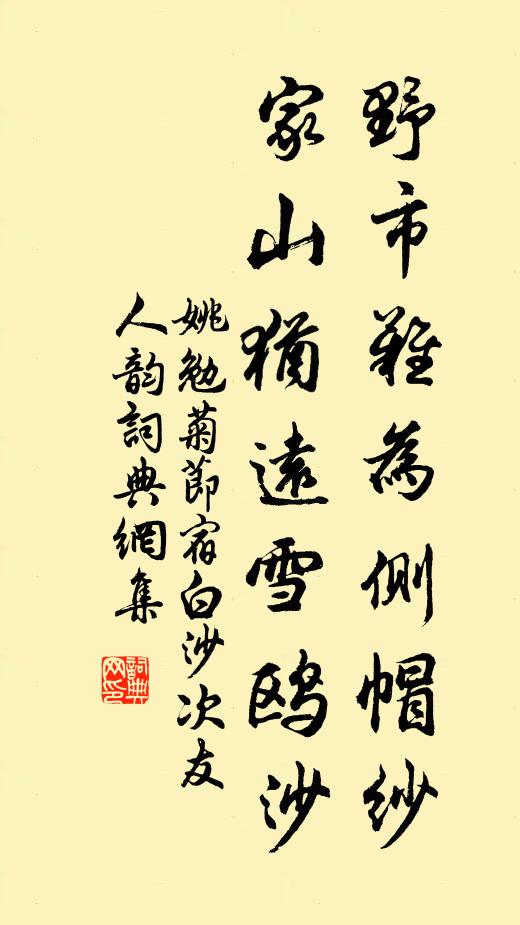 野市難為側帽紗
家山猶遠雪鷗沙
姚勉菊節宿白沙次友
人韵詞典網集
詞典
网印